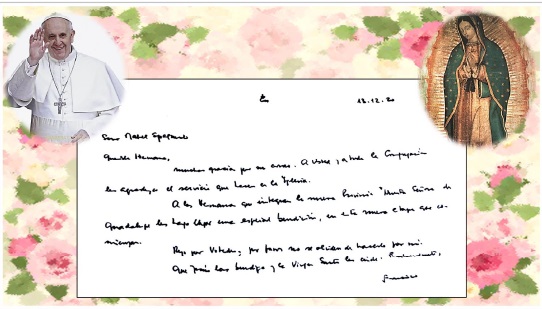 13.12.20
Querida Hermana,
muchas gracias por su correo. A Usted y a toda la Compañía
les agradezco el servicio que hacen en la Iglesia.
A las Hermanas que integran la nueva Provincia "Nuestra Señora de
Guadalupe les hago llegar una especial bendición, en esta nueva etapa que co-
mienzan.
Rezo por Ustedes; por favor no se olviden de hacerlo por mí.
Que Jesús las bendiga y la Virgen Santa las cuide. Fraternalmente,
Francisco